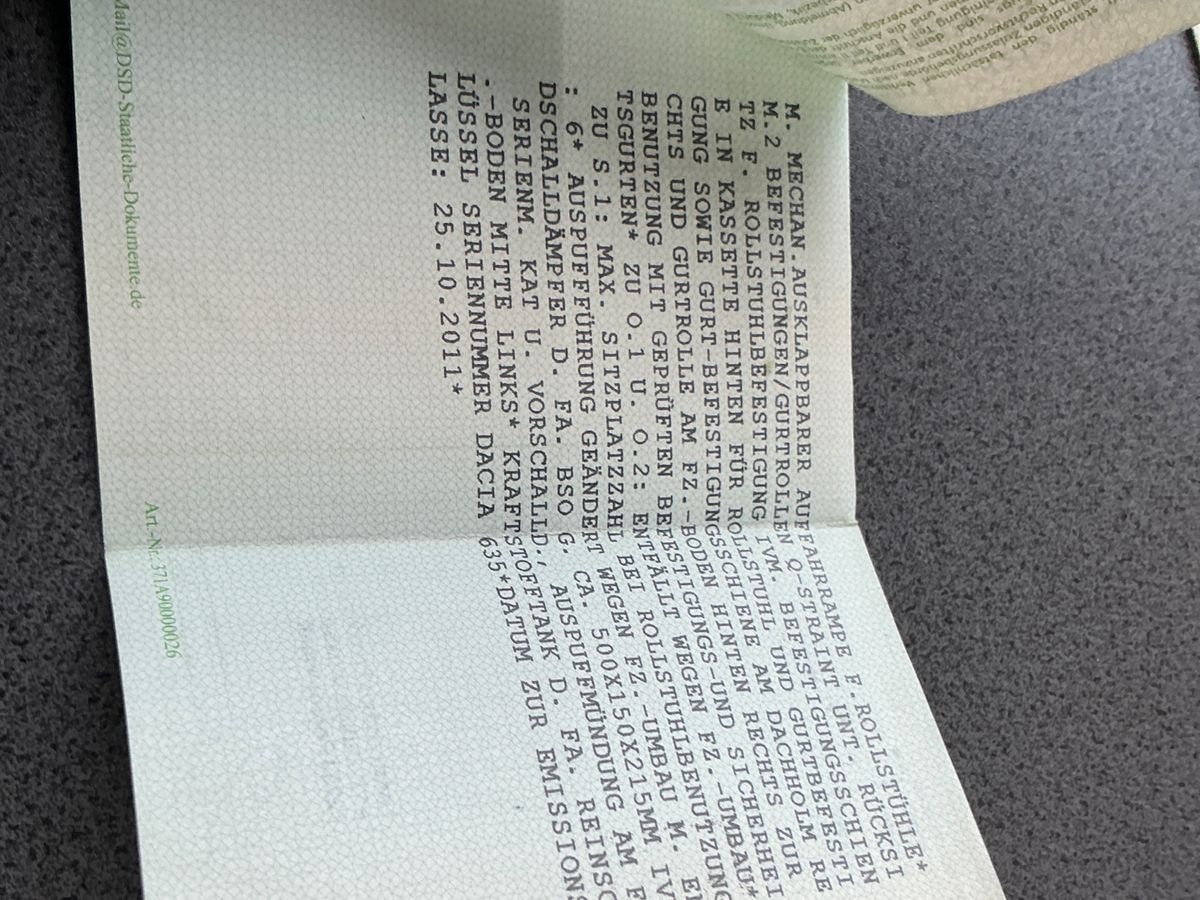 M. MECHAN.AUSKLAPPBARER AUFFAHRRAMPE F.ROLLSTÜHLE*
M.2 BEFESTIGUNGEN/GURTROLLEN Q-STRAINT UNT. RÜCKSI
TZ F. ROLLSTUHLBEFESTIGUNG IVM. BEFESTIGUNGSSCHIEN
E IN KASSETTE HINTEN FÜR ROLLSTUHL UND GURTBEFESTI
GUNG SOWIE GURT-BEFESTIGUNGSSCHIENE AM DACHHOLM RE
CHTS UND GURTROLLE AM FZ.-BODEN HINTEN RECHTS ZUR
BENUTZUNG MIT GEPRÜFTEN BEFESTIGUNGS-UND SICHERHEI
TSGURTEN* ZU O.1 U. O.2: ENTFÄLLT WEGEN FZ.-UMBAU*
ZU S.1: MAX. SITZPLATZZAHL BEI ROLLSTUHLBENUTZUNG
: 6* AUSPUFFFÜHRUNG GEÄNDERT WEGEN FZ.-UMBAU M. E
DSCHALLDÄMPFER D. FA. BSO G. CA. 500X150X215MM IV
SERIENM. KAT U. VORSCHALLD., AUSPUFFMÜNDUNG AM F
.-BODEN MITTE LINKS* KRAFTSTOFFTANK D. FA. REINSC
LÜSSEL SERIENNUMMER DACIA 635*DATUM ZUR EMISSIONS
LASSE: 25.10.2011*
Mail@DSD-Staatliche-Dokumente.de
Art.-Nr. 371A90000026